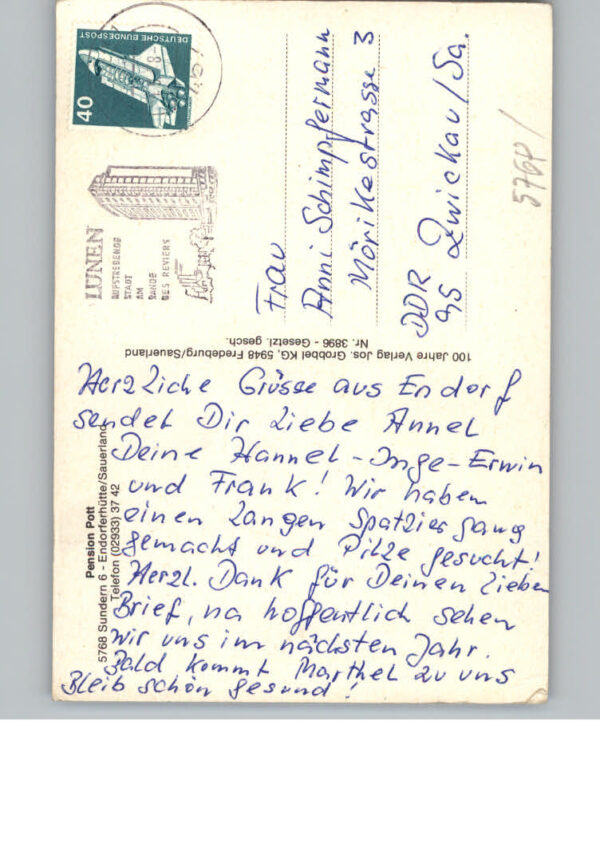 Herzliche Grüsse aus Endorf
sendet Dir Liebe Annel
Deine Hannel-Inge-Erwin
und Frank! Wir haben
einen langen Spatziergang
gemacht und Pilze gesucht!
Herzl. Dank für Deinen lieben
Brief, na hoffentlich sehen
wir uns im nächsten Jahr.
Bald kommt Marthel zu uns
Bleib schön gesund!
Pension Pott
5768 Sundern 6 - Endorferhütte/Sauerland
Telefon (02933) 37 42
100 Jahre Verlag Jos. Grobbel KG, 5948 Fredeburg/Sauerland
Nr. 3896 - Gesetzl. gesch.
LÜNEN
AUFSTREBENDE
STADT
AM
RANDE
DES REVIERS
DEUTSCHE BUNDESPOST
40
Frau
Anni Schimpfermann
Mörikestrasse 3
DDR
95 Zwickau/Sa.